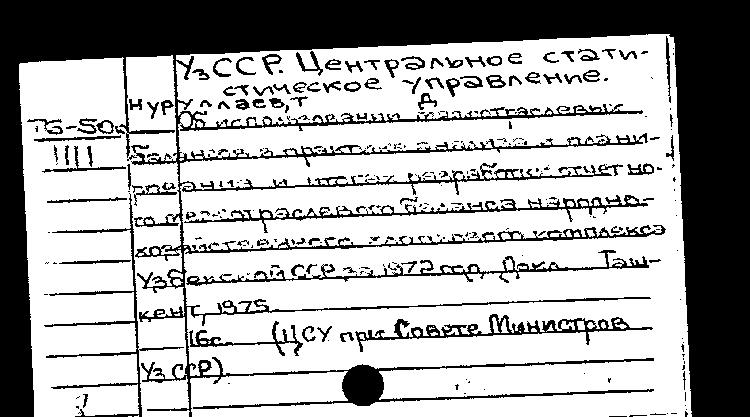 УзССР. Центральное стати-
стическое управление.
Нуруллаев, Т Д
76-50к Об использовании межотраслевых
1111 балансов в практике анализа и плани-
рования и итогах разработки отчетно-
го межотраслевого баланса народно-
хозяйственного хлопкового комплекса
Узбекской ССР за 1972 год. Докл. Таш-
кент, 1975.
16с. (ЦСУ при Совете Министров
УзССР).